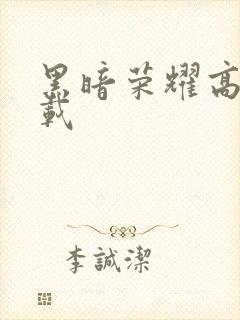 黑暗荣耀高
載
李誠潔